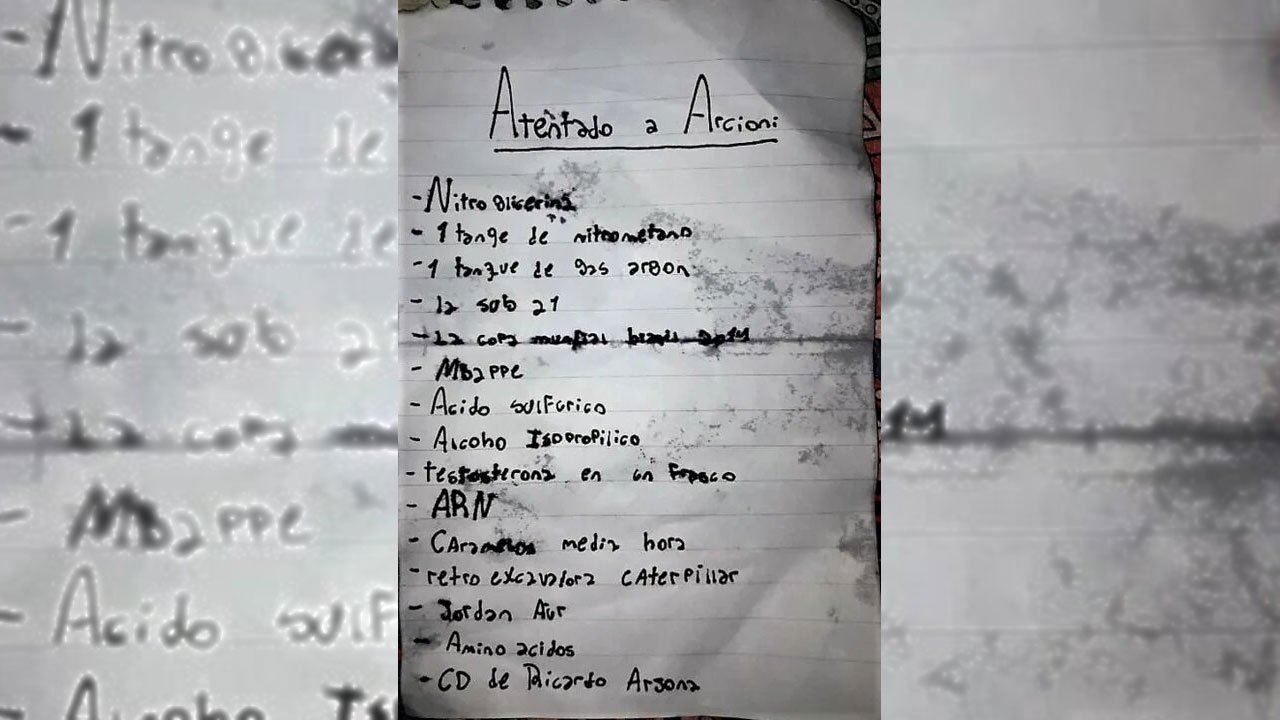 Atentado a Arcioni
- Nitro Glicerina
- 1 tange de nitrometano
- 1 tanque de gas argon
- la sub 21
- La copa mundial brasil 2014
- Mbappe
- Acido sulfurico
- Alcoho Isopropilico
- testosterona en un frasco
- ARN
- CAramelos media hora
- retro excavalora CAterpillar
- Jordan Aur
- Amino acidos
- CD de Ricardo Arjona